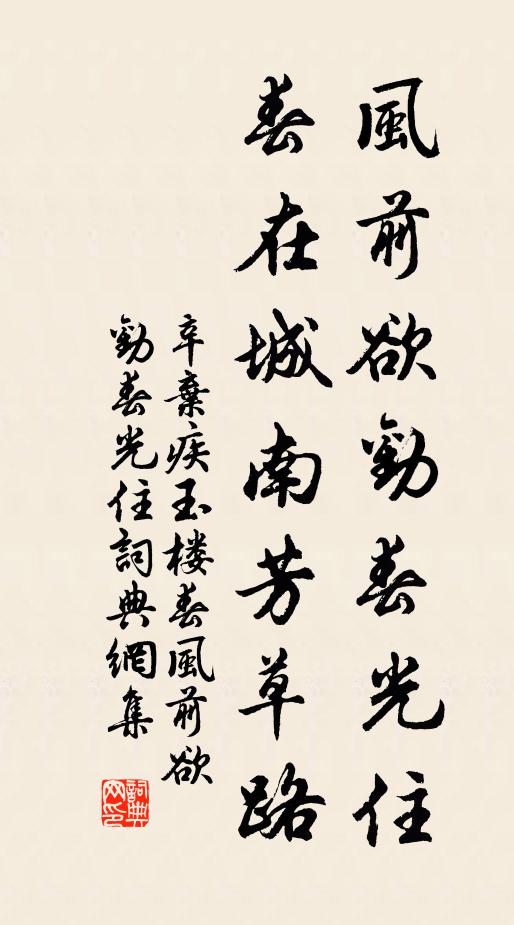 風前欲勸春光住
春在城南芳草路
辛棄疾玉楼春風前欲
勸春光住詞典網集
詞典
网印